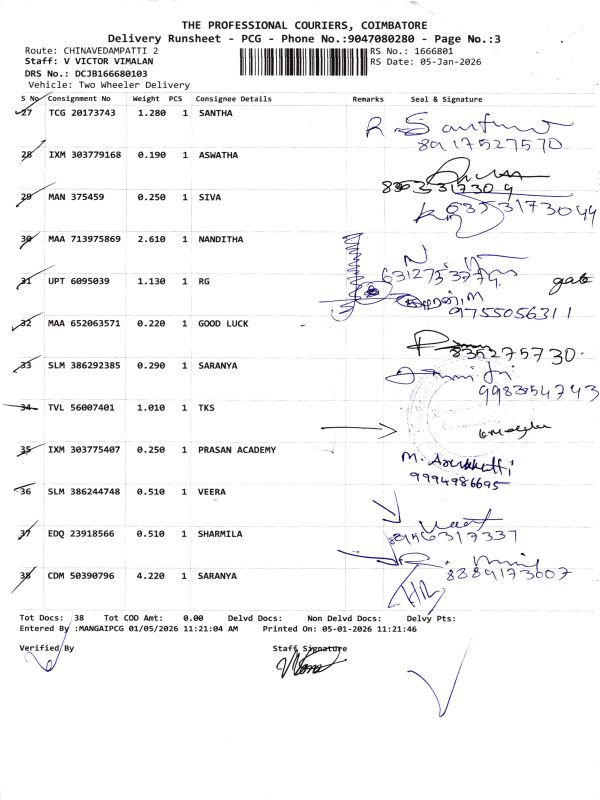 THE PROFESSIONAL COURIERS, COIMBATORE
Delivery Runsheet - PCG - Phone No.:9047080280 - Page No.:3
Route: CHINAVEDAMPATTI 2 RS No.: 1666801
Staff: V VICTOR VIMALAN RS Date: 05-Jan-2026
DRS No.: DCJB166680103
Vehicle: Two Wheeler Delivery
S No Consignment No Weight PCS Consignee Details Remarks Seal & Signature
27 TCG 20173743 1.280 1 SANTHA
8917527570
28 IXM 303779168 0.190 1 ASWATHA
29 MAN 375459 0.250 1 SIVA
30 MAA 713975869 2.610 1 NANDITHA
31 UPT 6095039 1.130 1 RG
gate
9755056311
32 MAA 652063571 0.220 1 GOOD LUCK
33 SLM 386292385 0.290 1 SARANYA
34 TVL 56007401 1.010 1 TKS
35 IXM 303775407 0.250 1 PRASAN ACADEMY
9994986695
36 SLM 386244748 0.510 1 VEERA
37 EDQ 23918566 0.510 1 SHARMILA
38 CDM 50390796 4.220 1 SARANYA
8889173007
Tot Docs: 38 Tot COD Amt: 0.00 Delvd Docs: Non Delvd Docs: Delvy Pts:
Entered By :MANGAIPCG 01/05/2026 11:21:04 AM Printed On: 05-01-2026 11:21:46
Verified By Staff Signature